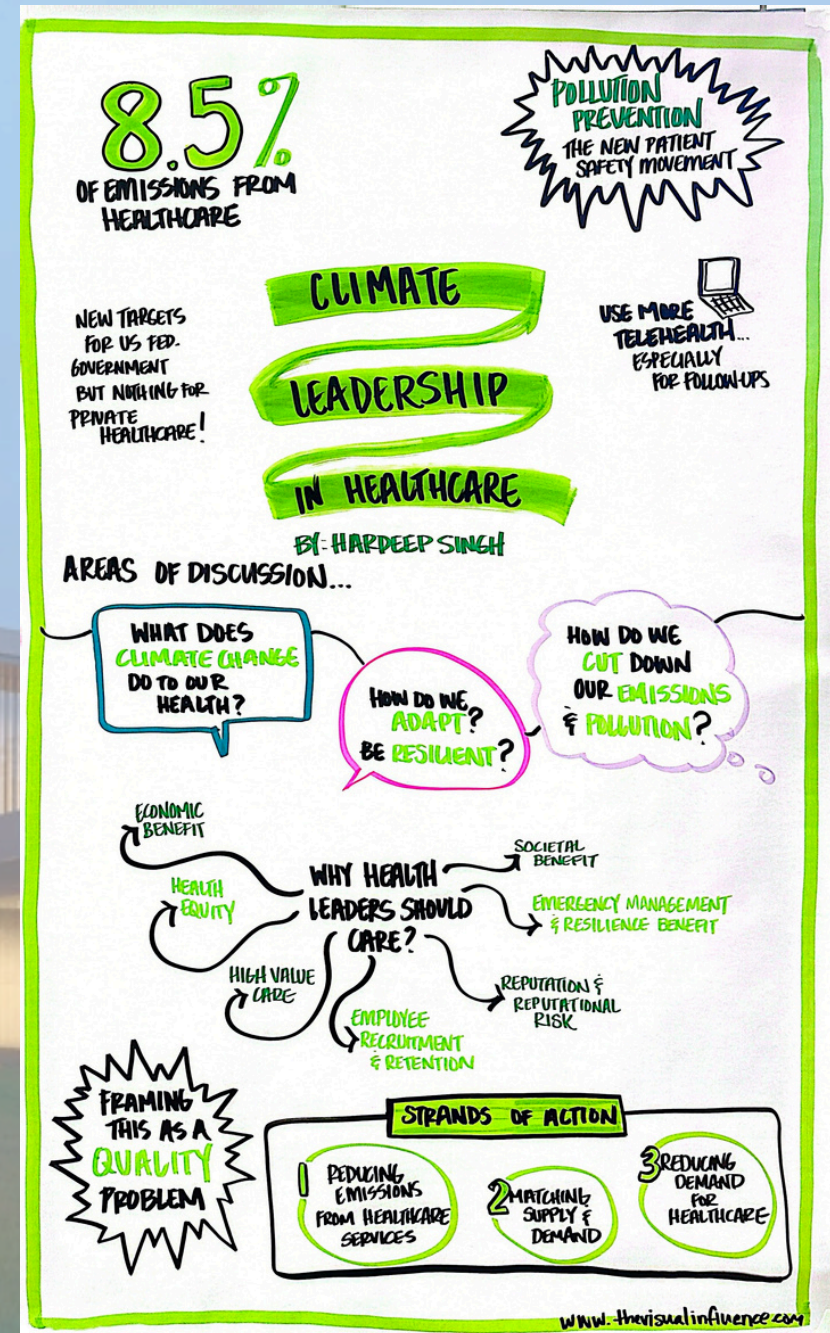 8.5%
OF EMISSIONS FROM
HEALTHCARE
POLLUTION
PREVENTION
THE NEW PATIENT
SAFETY MOVEMENT
NEW TARGETS
FOR US FED.
GOVERNMENT
BUT NOTHING FOR
PRIVATE
HEALTHCARE!
CLIMATE
LEADERSHIP
IN HEALTHCARE
BY: HARDEEP SINGH
USE MORE
TELEHEALTH...
ESPECIALLY
FOR FOLLOW-UPS
AREAS OF DISCUSSION...
WHAT DOES
CLIMATE CHANGE
DO TO OUR
HEALTH?
HOW DO WE
ADAPT?
BE RESILIENT?
HOW DO WE
CUT DOWN
OUR EMISSIONS
& POLLUTION?
WHY HEALTH
LEADERS SHOULD
CARE?
ECONOMIC
BENEFIT
HEALTH
EQUITY
HIGH VALUE
CARE
EMPLOYEE
RECRUITMENT
& RETENTION
SOCIETAL
BENEFIT
EMERGENCY MANAGEMENT
& RESILIENCE BENEFIT
REPUTATION &
REPUTATIONAL
RISK
FRAMING
THIS AS A
QUALITY
PROBLEM
STRANDS OF ACTION
1 REDUCING
EMISSIONS
FROM HEALTHCARE
SERVICES
2 MATCHING
SUPPLY &
DEMAND
3 REDUCING
DEMAND
FOR
HEALTHCARE
www.thevisualinfluence.com